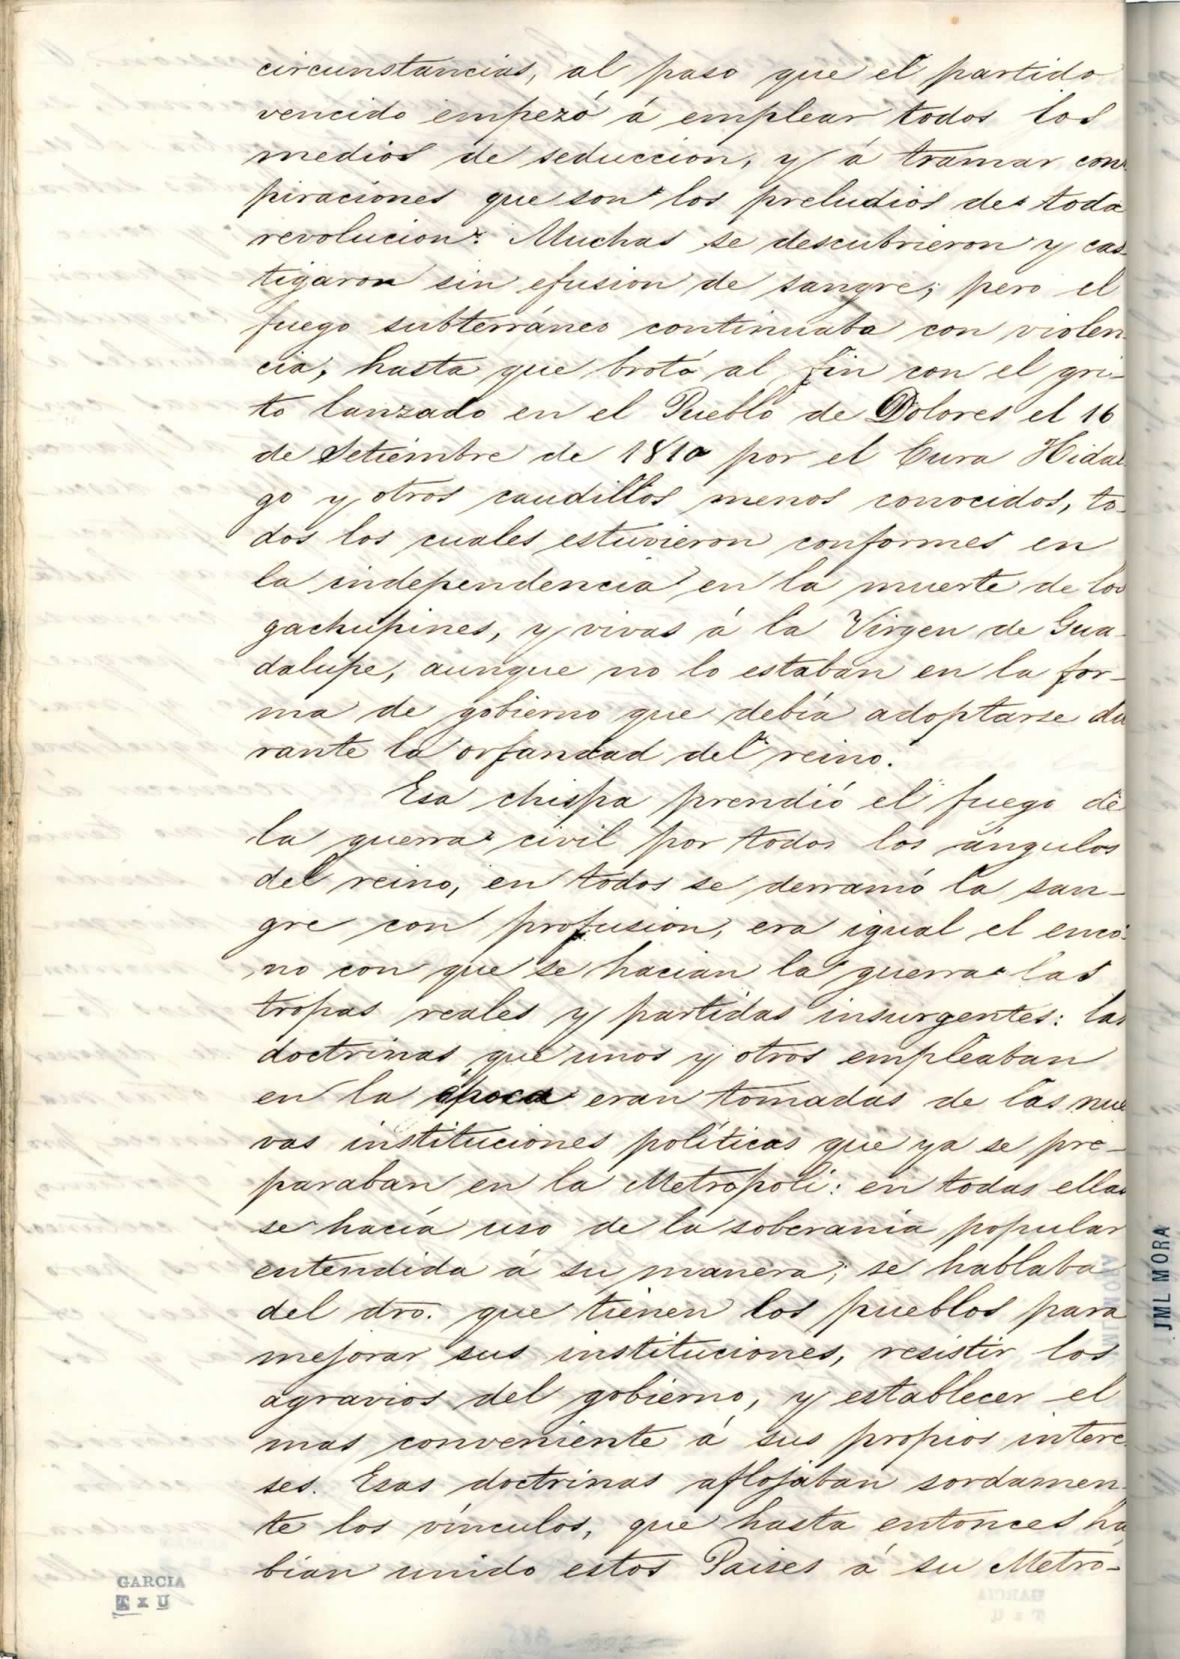 circunstancias, al paso que el partido
vencido empezó á emplear todos los
medios de seduccion, y á tramar cons
piraciones que son los preludios de toda
revolucion. Muchas se descubrieron y cas
tigaron sin efusion de sangre; pero el
fuego subterráneo continuaba con violen
cia, hasta que brotó al fin con el gri-
to lanzado en el Pueblo de Dolores el 16
de Setiembre de 1810 por el Cura Hidal
go y otros caudillos menos conocidos, to-
dos los cuales estuvieron conformes en
la independencia en la muerte de los
gachupines, y vivas á la Virgen de Gua-
dalupe, aunque no lo estaban en la for-
ma de gobierno que debía adoptarse du
rante la orfandad del reino.
Esa chispa prendió el fuego de
la guerra civil por todos los ángulos
del reino, en todos se derramó la san-
gre con profusion, era igual el encó-
no con que se hacian la guerra las
tropas reales y partidas insurgentes: las
doctrinas que unos y otros empleaban
en la época eran tomadas de las nue
vas instituciones políticas que ya se pre-
paraban en la Metrópoli: en todas ellas
se hacía uso de la soberanía popular
entendida á su manera; se hablaba
del dro. que tienen los pueblos para
mejorar sus instituciones, resistir los
agravios del gobierno, y establecer el
mas conveniente á sus propios intere
ses. Esas doctrinas aflojaban sordamen
te los vínculos, que hasta entonces ha
bian unido estos Paises á su Metró-
GARCIA
T x U
JML MORA